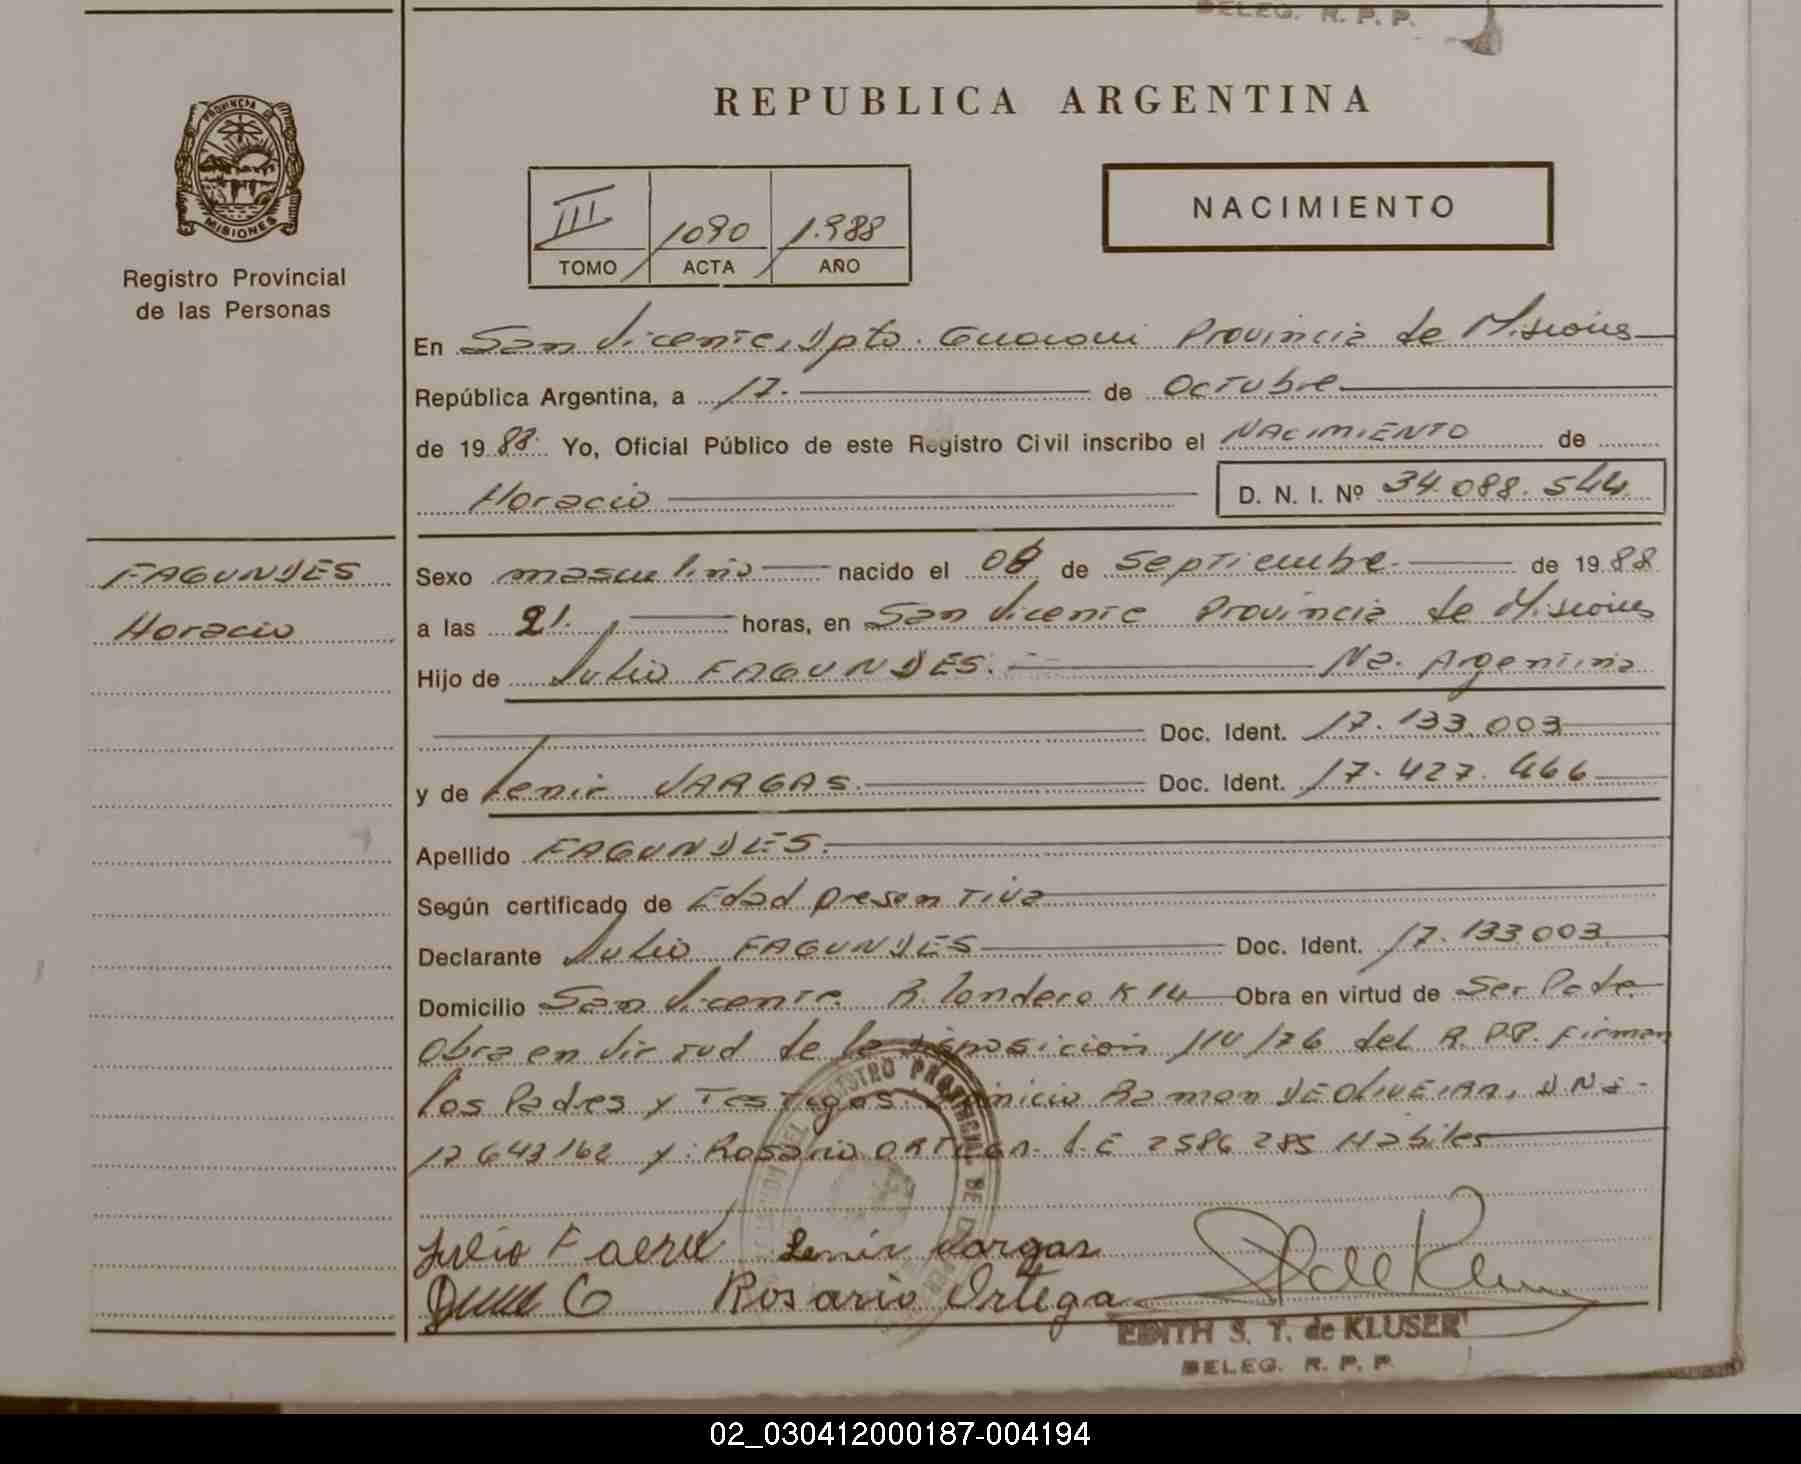 DELEG. R. P. P.
REPUBLICA ARGENTINA
PROVINCIA
MISIONES
Registro Provincial
de las Personas
III 1090 1.988
TOMO ACTA AÑO
NACIMIENTO
En San Vicente, Dpto. Guarani Provincia de Misiones
República Argentina, a 17. de Octubre
de 19 88. Yo, Oficial Público de este Registro Civil inscribo el NACIMIENTO de
Horacio D. N. I. Nº 34.088.544
FAGUNDES
Horacio
Sexo masculino nacido el 08 de Septiembre. de 19 88
a las 21. horas, en San Vicente Provincia de Misiones
Hijo de Julio FAGUNDES. Na. Argentina
Doc. Ident. 17.133.003
y de Lenir VARGAS. Doc. Ident. 17.427.466
Apellido FAGUNDES.
Según certificado de Edad presentiva
Declarante Julio FAGUNDES Doc. Ident. 17.133.003
Domicilio San Vicente R. Londero K 14 Obra en virtud de Ser Padre
Obra en virtud de la Disposicion 110/76 del R.P.P. Firman
los Padres y Testigos Ramon DE OLIVEIRA, D.N.I.
y: Rosario L.E 2586285 Habiles
Julio Lenir Vargas
Rosario Ortega
EDITH S. T. de KLUSER
DELEG. R. P. P.
02_030412000187-004194